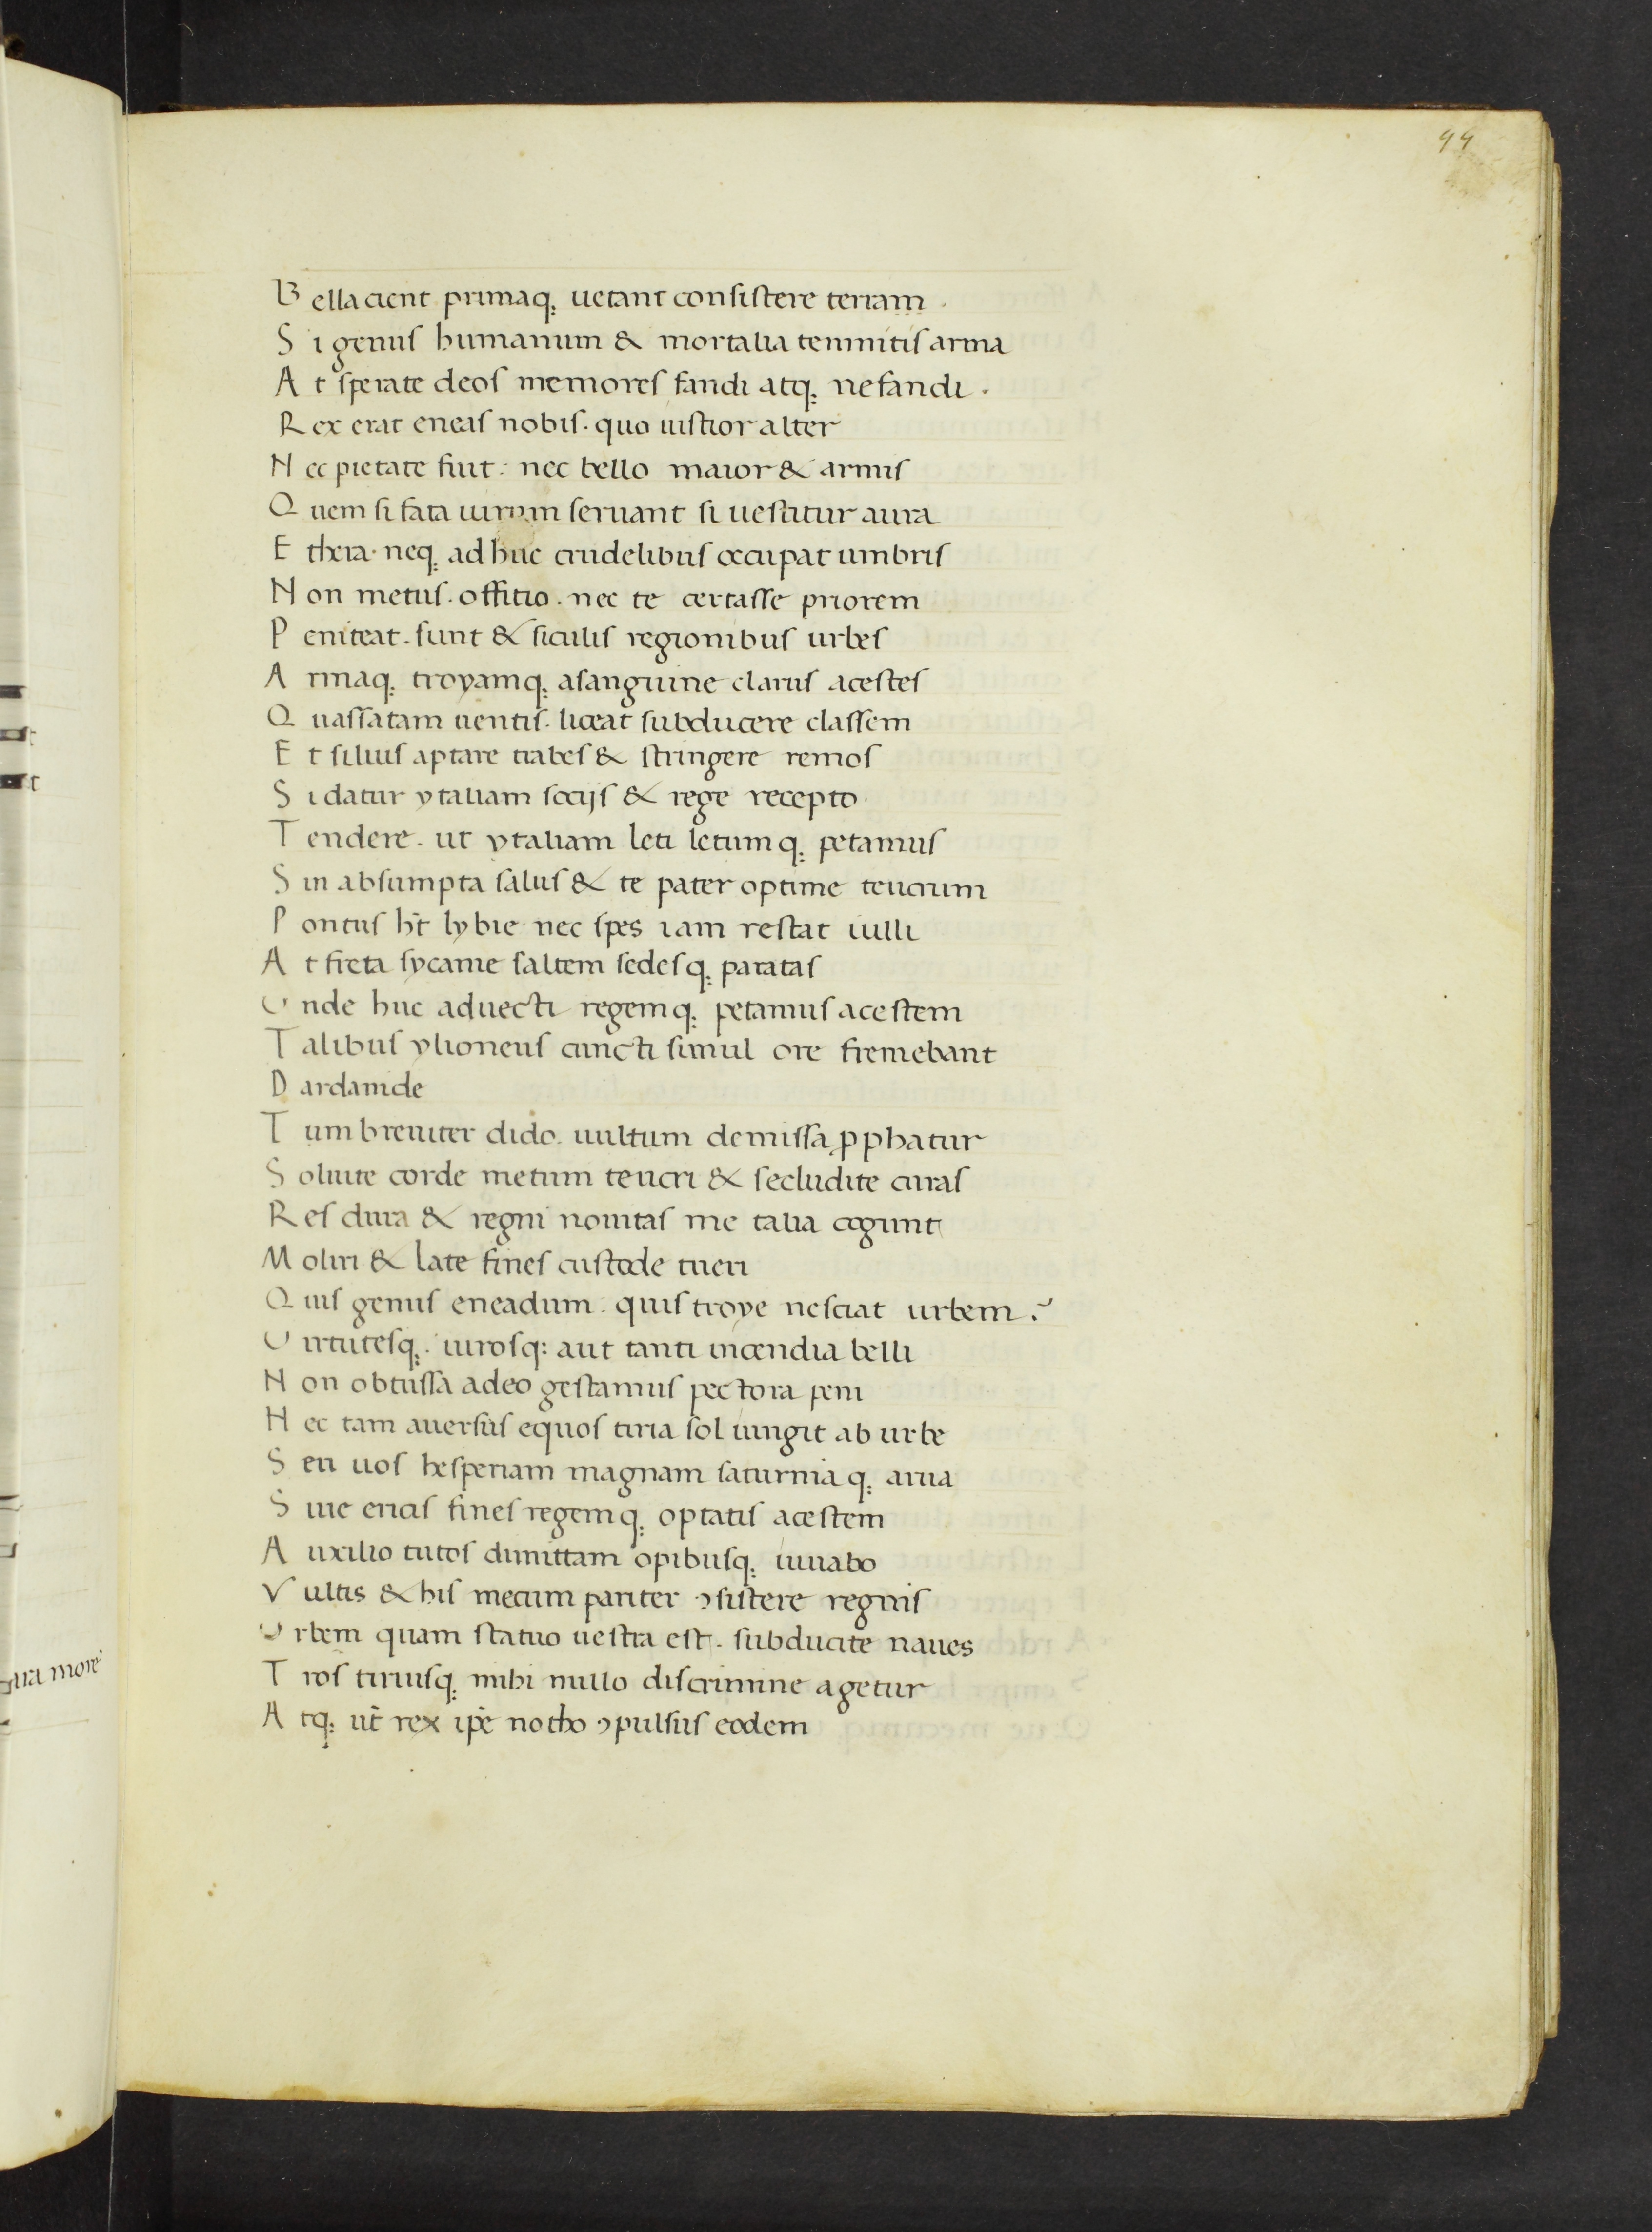 44
B ella cient primaq; uetant consistere terram .
S i genus humanum & mortalia temnitis arma
A t sperate deos memores fandi atq; nefandi .
R ex erat eneas nobis . quo iustior alter
N ec pietate fuit . nec bello maior & armis
Q uem si fata uirum seruant si uescitur aura
E thera . neq; ad huc crudelibus occupat umbris
N on metus . offitio . nec te certasse priorem
P eniteat . sunt & siculis regionibus urbes
A rmaq; troyamq; asanguine clarus acestes
Q uassatam uentis . liceat subducere classem
E t siluis aptare trabes & stringere remos
S i datur ytaliam socijs & rege recepto
T endere . ut ytaliam leti letumq; petamus
S in absumpta salus & te pater optime teucrum
P ontus ht̄ lybie nec spes iam restat iulli
A t freta sycanie saltem sedesq; paratas
U nde huc aduecti regemq; petamus acestem
T alibus ylioneus cuncti simul ore fremebant
D ardanide
T um breuiter dido . uultum demissa ꝓphatur
S oluite corde metum teucri & secludite curas
R es dura & regni nouitas me talia cogunt
M oliri & late fines custode tueri
Q uis genus eneadum . quis troye nesciat urbem ?
U irtutesq; . uirosq; aut tanti incendia belli
N on obtussa adeo gestamus pectora peni
N ec tam auersus equos tiria sol iungit ab urbe
S eu uos hesperiam magnam saturniaq; arua
S iue ericis fines regemq; optatis acestem
A uxilio tutos dimittam opibusq; iuuabo
V ultis & his mecum pariter ↄsistere regnis
U rbem quam statuo uestra est . subducite naues
T ros tiriusq; mihi nullo discrimine agetur
A tq; ut̄ rex ip̄e notho ↄpulsus eodem
more